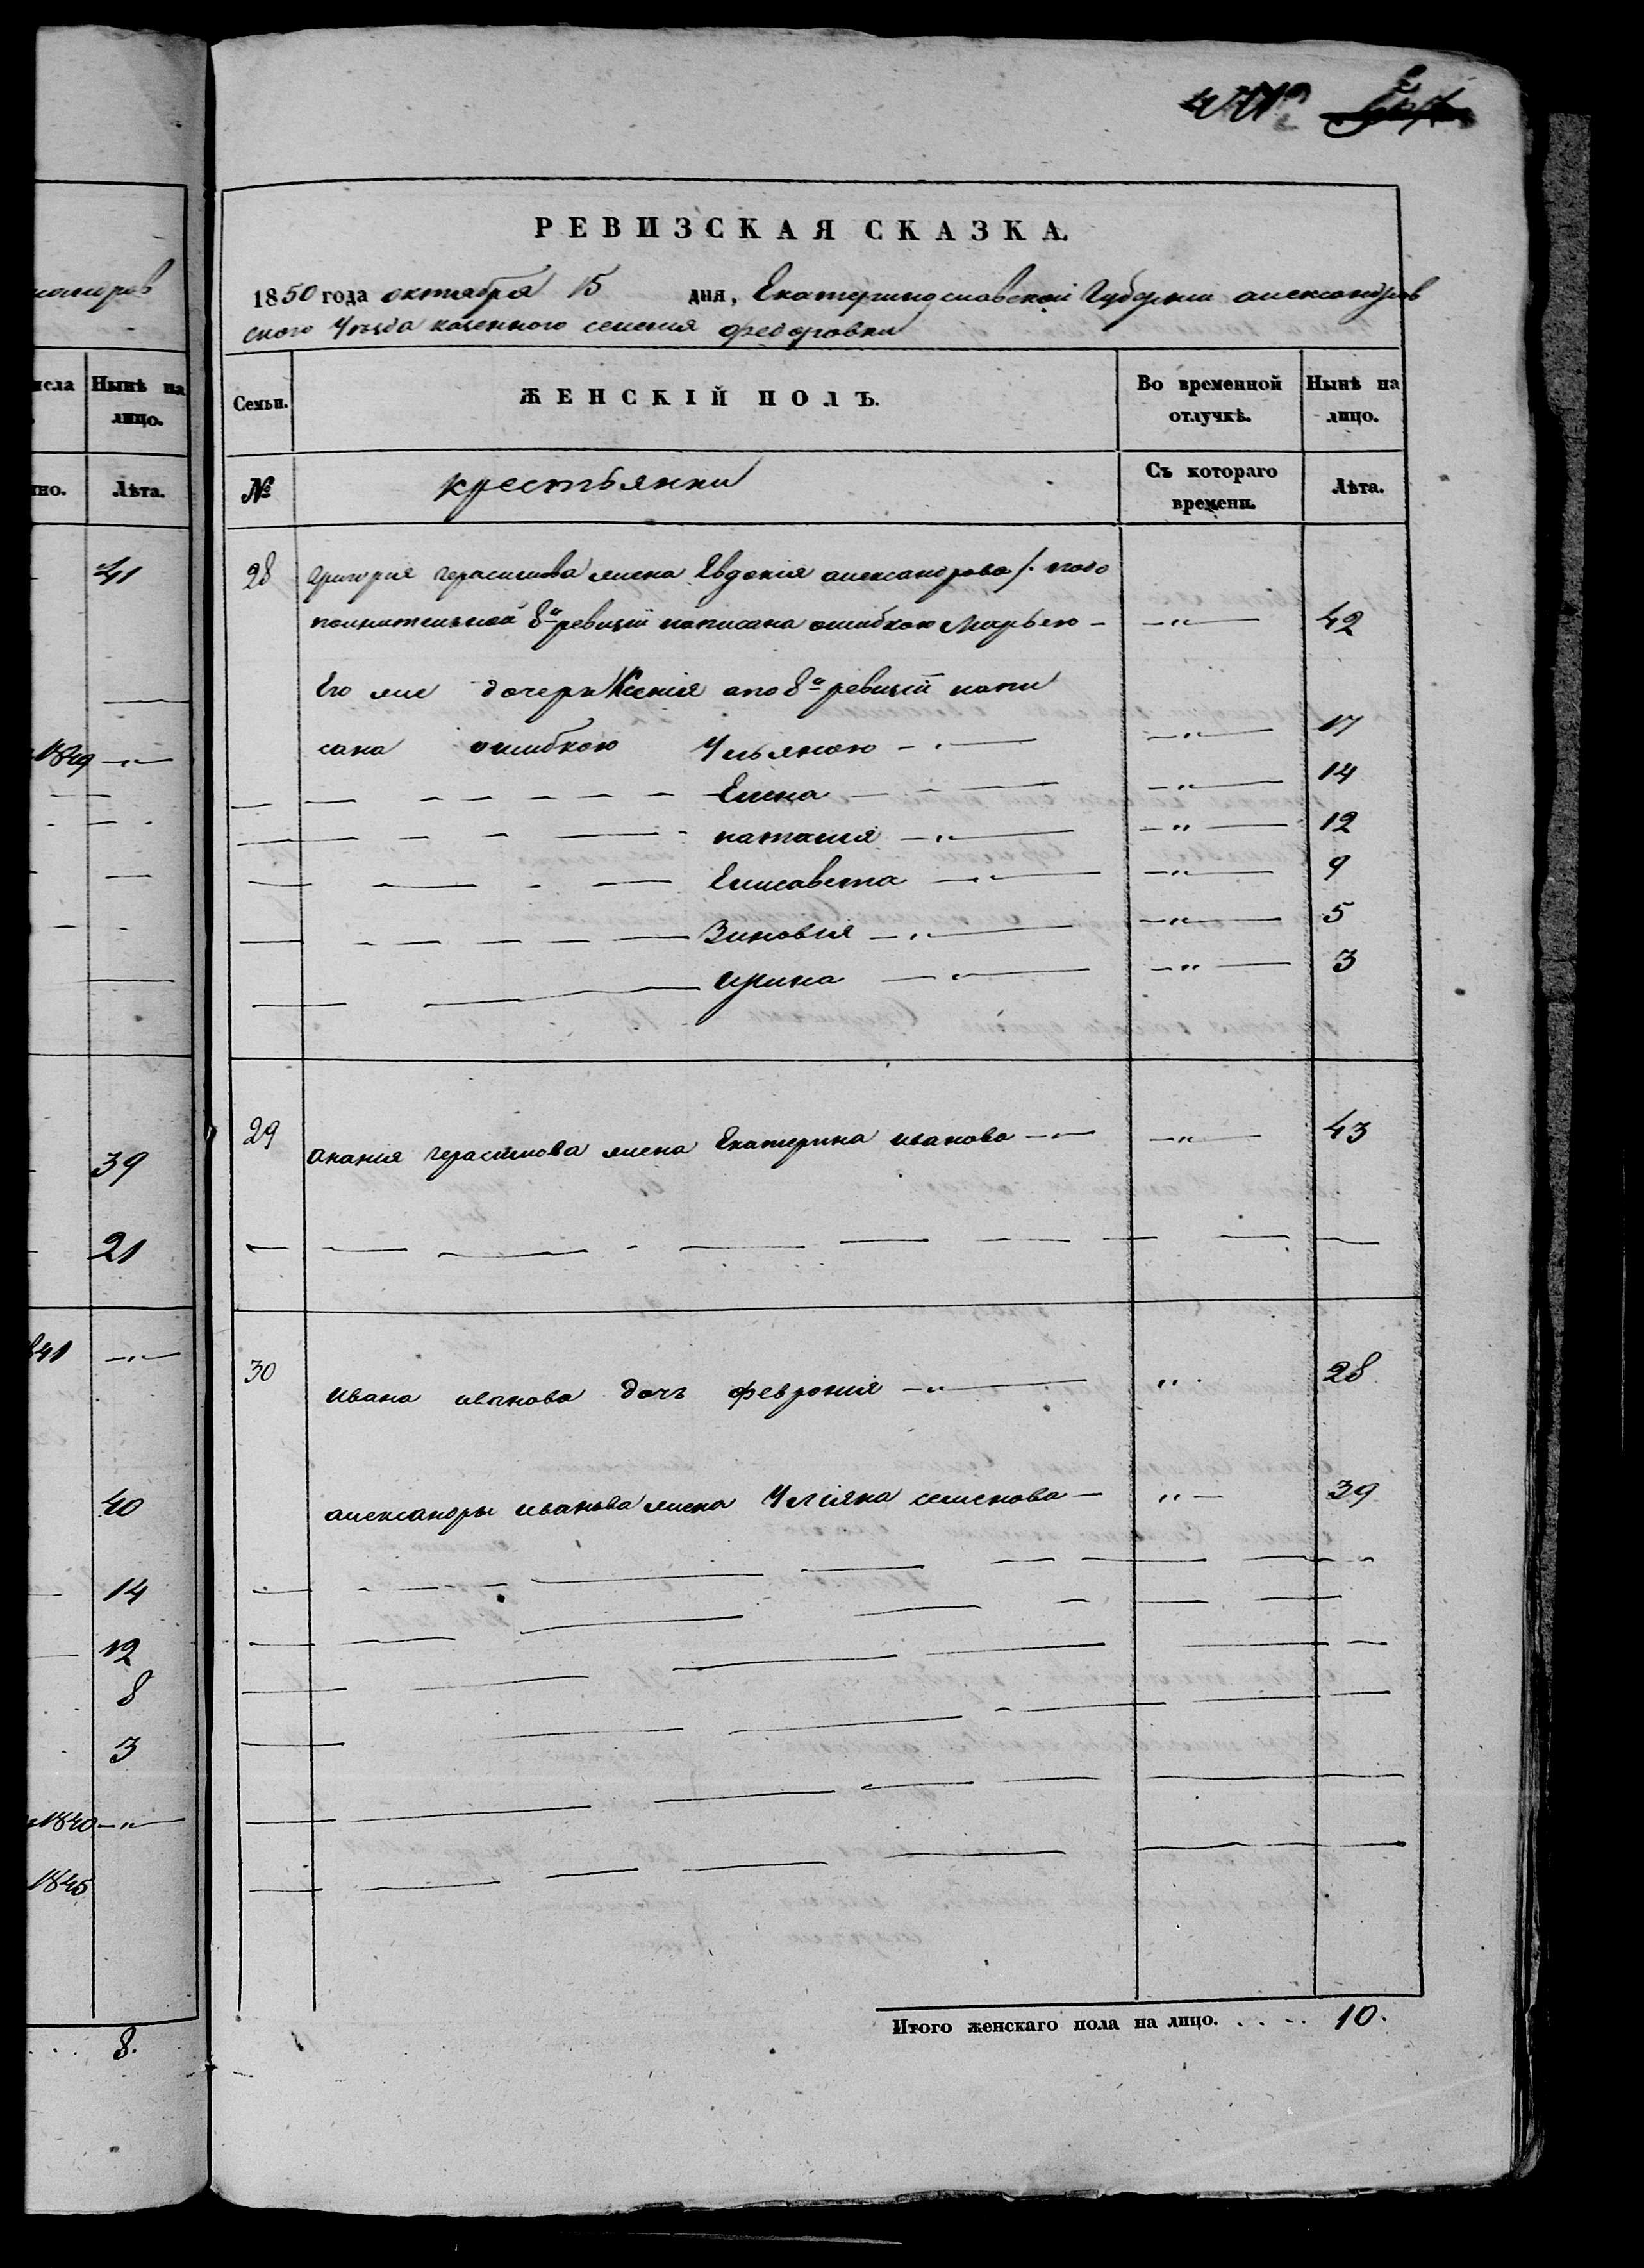 РЕВИЗСКАЯ СКАЗКА.
1850 года октября 15 дня, Екатеринославской Губернии александров
ского Уезда казенного селения федоровки
Семьи.
ЖЕНСКІЙ ПОЛЪ.
Во временной отлучкѣ.
Нынѣ на лицо.
№
крестьянки
Съ котораго времени.
Лѣта.
28 Григория герасимова жена Евдокія александрова
8й ревизіи написана ошибкою Марьею — — " — 42
Его же дочери Ксенія а по 8й ревизіи напи
сана ошибкою Ульяною — " — — " — 17
Елена — — " — 14
наталия — " — — " — 12
Елисавета — " — — " — 9
Зиновія — " — — " — 5
ирина — " — — " — 3
29 анания герасимова жена Екатерина иванова — " — — " — 43
30 Ивана иванова дочь феврония — " — " 28
александры иванова жена Улияна семенова — " — 39
Итого женскаго пола на лицо. . . . . 10.
исла
Нынѣ на лицо.
но.
Лѣта.
41
1849 — " —
39
21
841 — " —
40
14
12
8
3
1840 — " —
1845
8.